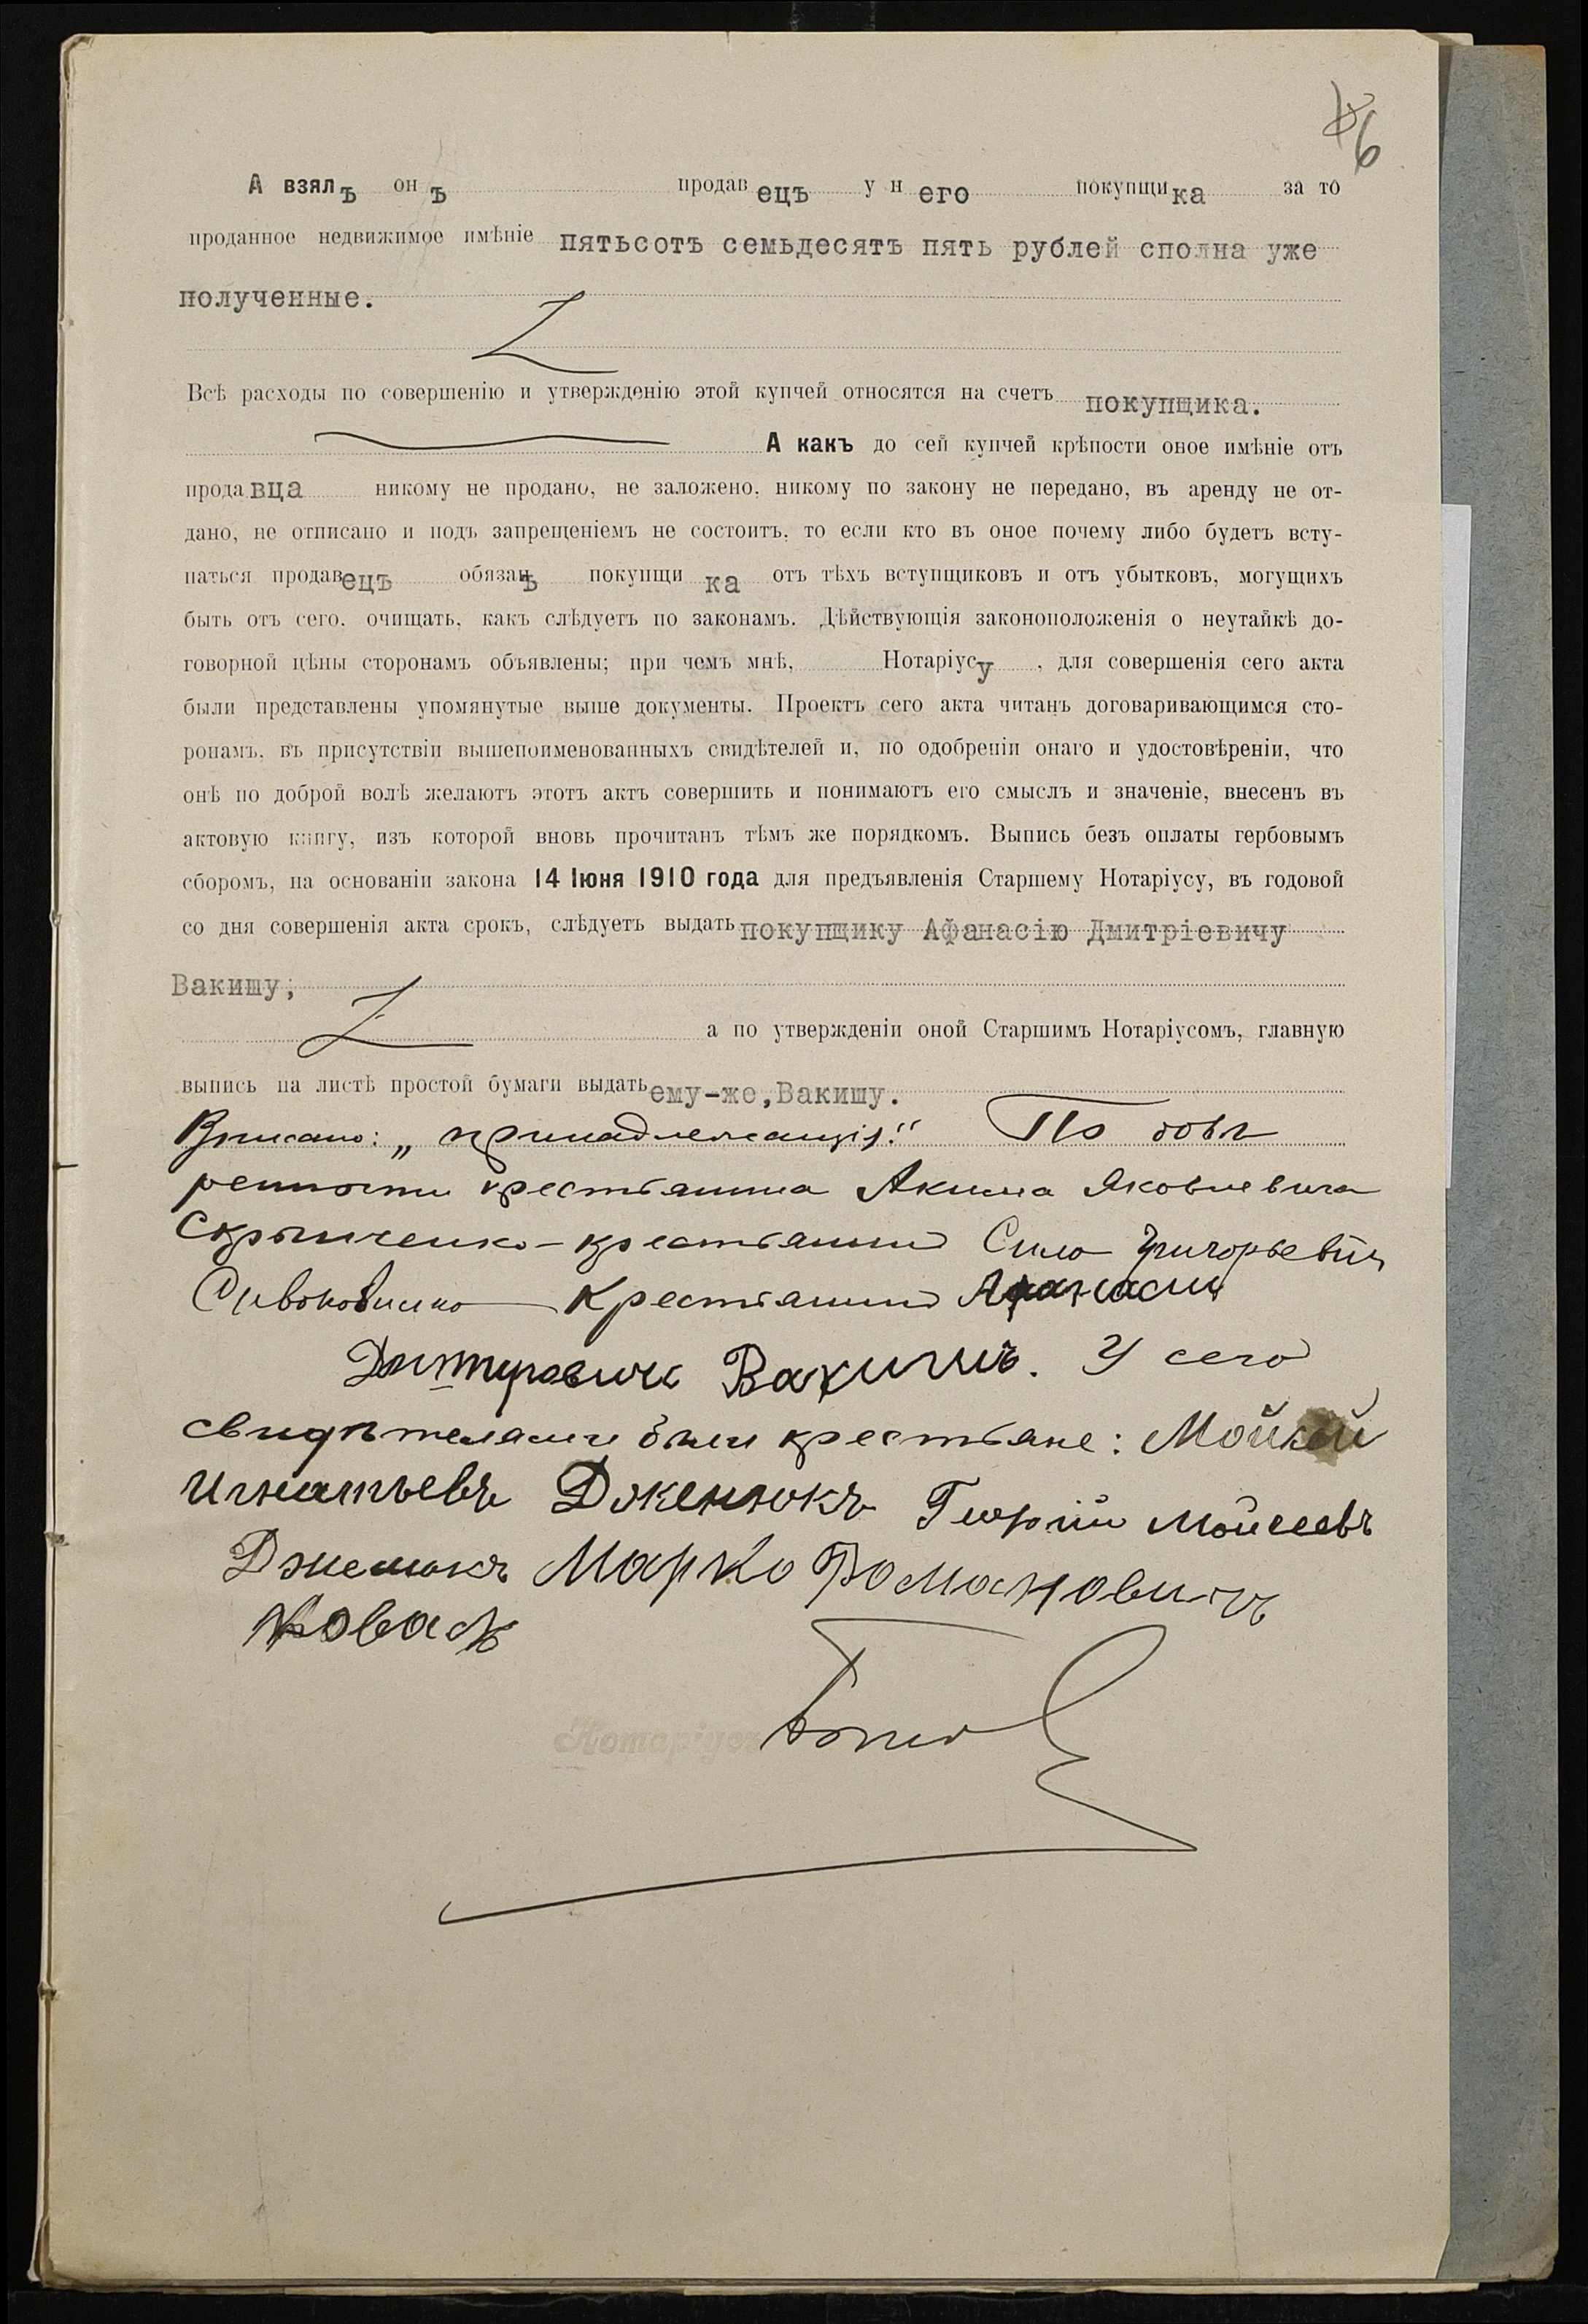 6
А взялъ онъ продавецъ у него покупщика за то
проданное недвижимое имѣніе пятьсотъ семьдесятъ пять рублей сполна уже
полученные.
Всѣ расходы по совершенію и утвержденію этой купчей относятся на счетъ покупщика.
А какъ до сей купчей крѣпости оное имѣніе отъ
продавца никому не продано, не заложено, никому по закону не передано, въ аренду не от-
дано, не отписано и подъ запрещеніемъ не состоитъ, то если кто въ оное почему либо будетъ всту-
паться продавецъ обязанъ покупщика отъ тѣхъ вступщиковъ и отъ убытковъ, могущихъ
быть отъ сего, очищать, какъ слѣдуетъ по законамъ. Дѣйствующія законоположенія о неутайкѣ до-
говорной цѣны сторонамъ объявлены; при чемъ мнѣ, Нотаріусу, для совершенія сего акта
были представлены упомянутые выше документы. Проектъ сего акта читанъ договаривающимся сто-
ронамъ, въ присутствіи вышепоименованныхъ свидѣтелей и, по одобреніи онаго и удостовѣреніи, что
онѣ по доброй волѣ желаютъ этотъ актъ совершить и понимаютъ его смыслъ и значеніе, внесенъ въ
актовую книгу, изъ которой вновь прочитанъ тѣмъ же порядкомъ. Выпись безъ оплаты гербовымъ
сборомъ, на основаніи закона 14 Іюня 1910 года для предъявленія Старшему Нотаріусу, въ годовой
со дня совершенія акта срокъ, слѣдуетъ выдать покупщику Афанасію Дмитріевичу
Вакишу,
а по утвержденіи оной Старшимъ Нотаріусомъ, главную
выпись на листѣ простой бумаги выдать ему-же, Вакишу.
Вписано: „принадлежащія." По довѣ
ренности крестьянина Акима Яковлевича
Скрыпченко - крестьянинъ Сила Григорьевичъ
Крестьянинъ Афанасий
Дмитровичъ Вакишъ. У сего
свидѣтелями были крестьяне: Мойсей
Игнатьевъ Дженюкъ Георгій Мойсеевъ
Дженюкъ Марко Романовичъ
Ковалъ
Нотаріусъ